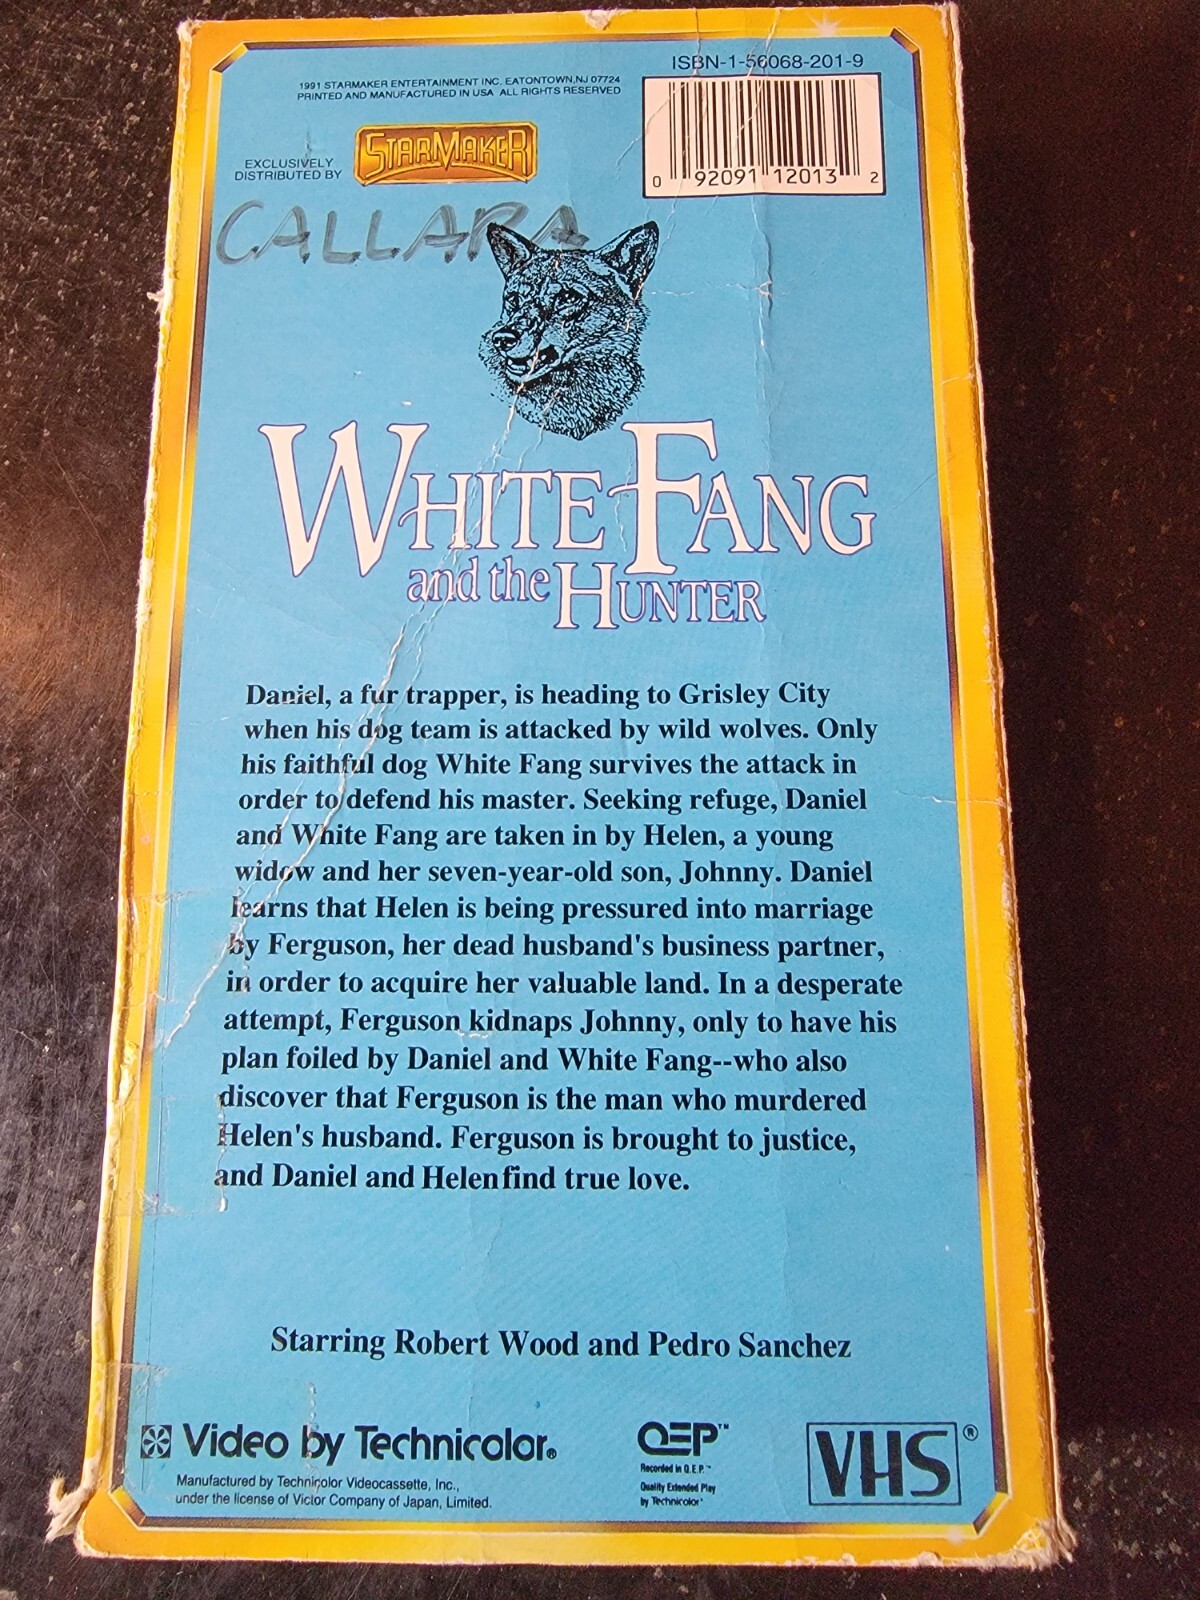 ISBN-1-56068-201-9
1991 STARMAKER ENTERTAINMENT INC. EATONTOWN,NJ 07724
PRINTED AND MANUFACTURED IN USA ALL RIGHTS RESERVED
EXCLUSIVELY
DISTRIBUTED BY
STARMAKER
0 92091 12013 2
CALLARA
WHITE FANG
and the HUNTER
Daniel, a fur trapper, is heading to Grisley City
when his dog team is attacked by wild wolves. Only
his faithful dog White Fang survives the attack in
order to defend his master. Seeking refuge, Daniel
and White Fang are taken in by Helen, a young
widow and her seven-year-old son, Johnny. Daniel
learns that Helen is being pressured into marriage
by Ferguson, her dead husband's business partner,
in order to acquire her valuable land. In a desperate
attempt, Ferguson kidnaps Johnny, only to have his
plan foiled by Daniel and White Fang--who also
discover that Ferguson is the man who murdered
Helen's husband. Ferguson is brought to justice,
and Daniel and Helen find true love.
Starring Robert Wood and Pedro Sanchez
Video by Technicolor®
Manufactured by Technicolor Videocassette, Inc.,
under the license of Victor Company of Japan, Limited.
QEP™
Recorded in Q.E.P.™
Quality Extended Play
by Technicolor®
VHS®